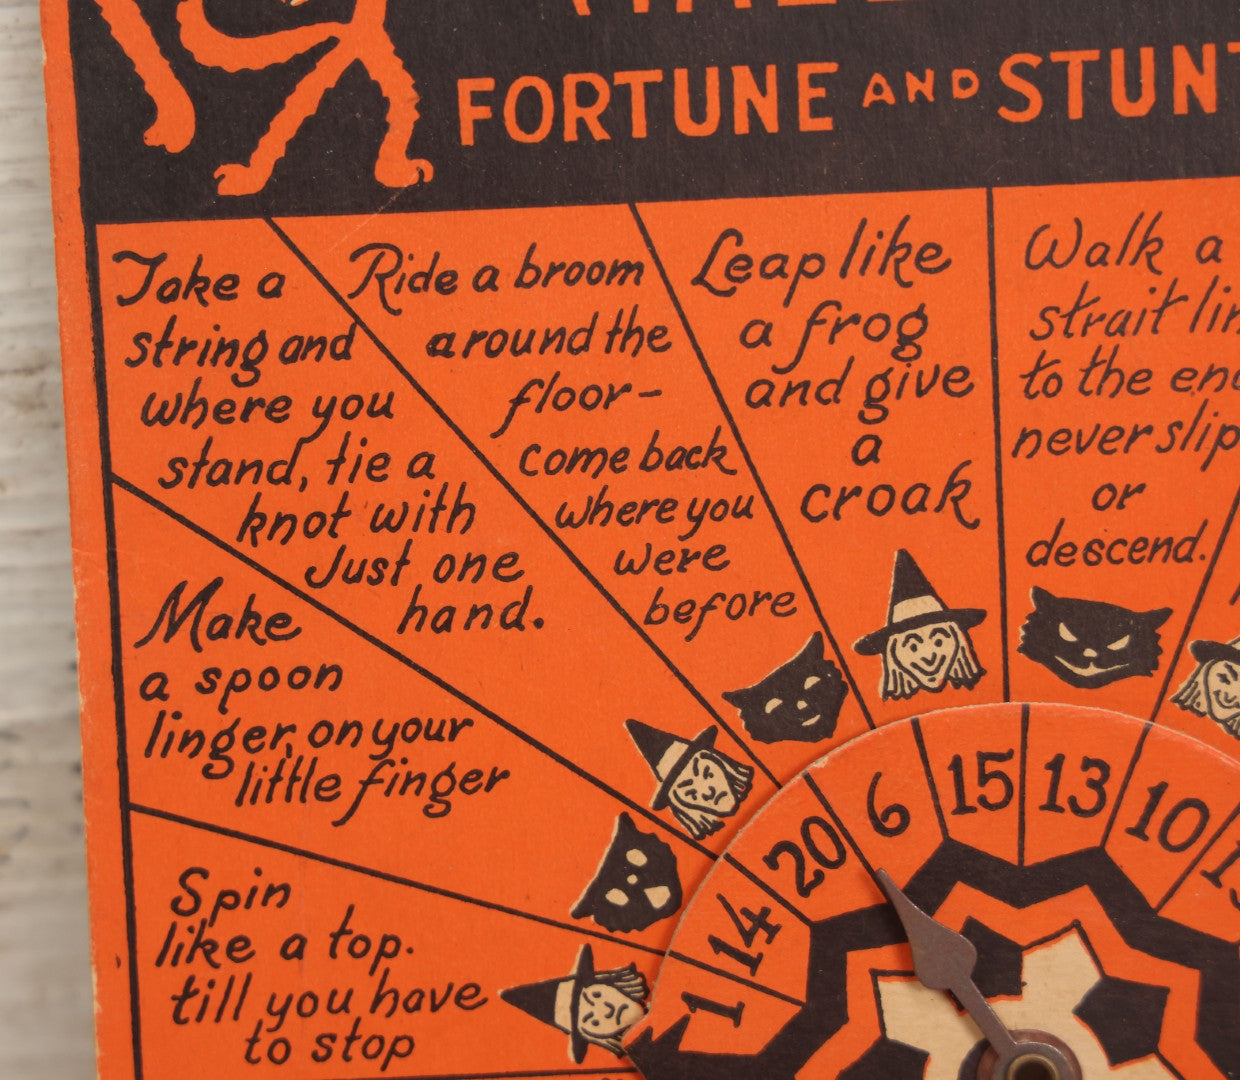 FORTUNE AND STUNT
Take a
string and
where you
stand, tie a
knot with
Just one
hand.
Ride a broom
around the
floor-
come back
where you
were
before
Leap like
a frog
and give
a
croak
Walk a
strait
to the
never slip
or
descend.
Make
a spoon
linger, on your
little finger
Spin
like a top.
till you have
to stop
1
14
20
6
15
13
10